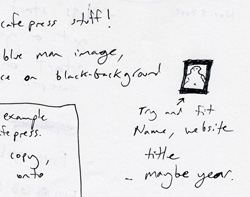 cafepress stuff!
blue man image,
ce on black background
Try and fit
Name, website
title
- maybe year.
example
fepress.
copy,
onto